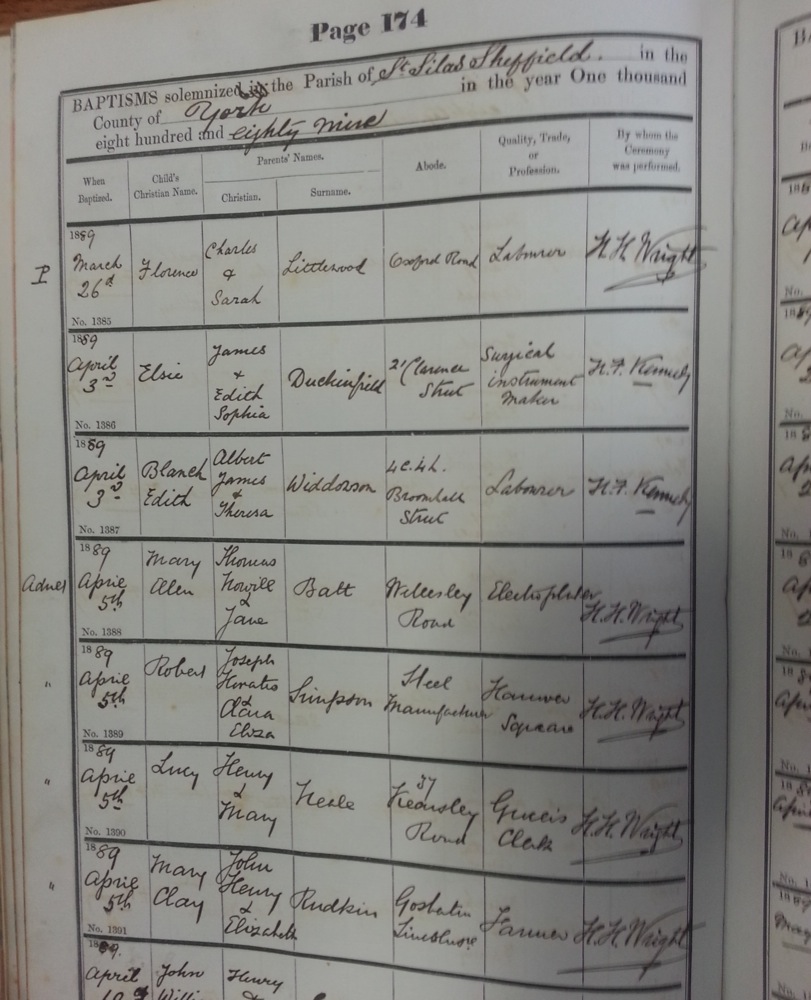 Page 174
BAPTISMS solemnized in the Parish of St. Silas Sheffield. in the
County of York in the year One thousand
eight hundred and eighty nine
When Baptized.
Child's Christian Name.
Parents' Names.
Christian.
Surname.
Abode.
Quality, Trade, or Profession.
By whom the Ceremony was performed.
P
1889
March
26d
No. 1385
Florence
Charles
&
Sarah
Littlewood
Oxford Road
Labourer
H H Wright
1889
April
3rd
No. 1386
Elsie
James
+
Edith
Sophia
Duckinfield
21 Clarence
Street
Surgical
instrument
maker
H. F. Kennedy
1889
April
3rd
No. 1387
Blanch
Edith
Albert
James
&
Theresa
Widdowson
4c. 4h.
Broomhall
Street
Labourer
H. F. Kennedy
Adnes
1889
April
5th
No. 1388
Mary
Alen
Thomas
Nowill
&
Jane
Batt
Road
Electroplater
H. H. Wright
"
1889
April
5th
No. 1389
Robert
Joseph
Horatio
&
Clara
Eliza
Simpson
Steel
Manufacturer
Hanover
Square
H. H. Wright
"
1889
April
5th
No. 1390
Lucy
Henry
&
Mary
Neale
37
Kearsley
Road
Clerk
H. H. Wright
"
1889
April
5th
No. 1391
Mary
Clay
John
Henry
&
Elizabeth
Rudkin
Farmer
H. H. Wright
1889.
April
John
Henry